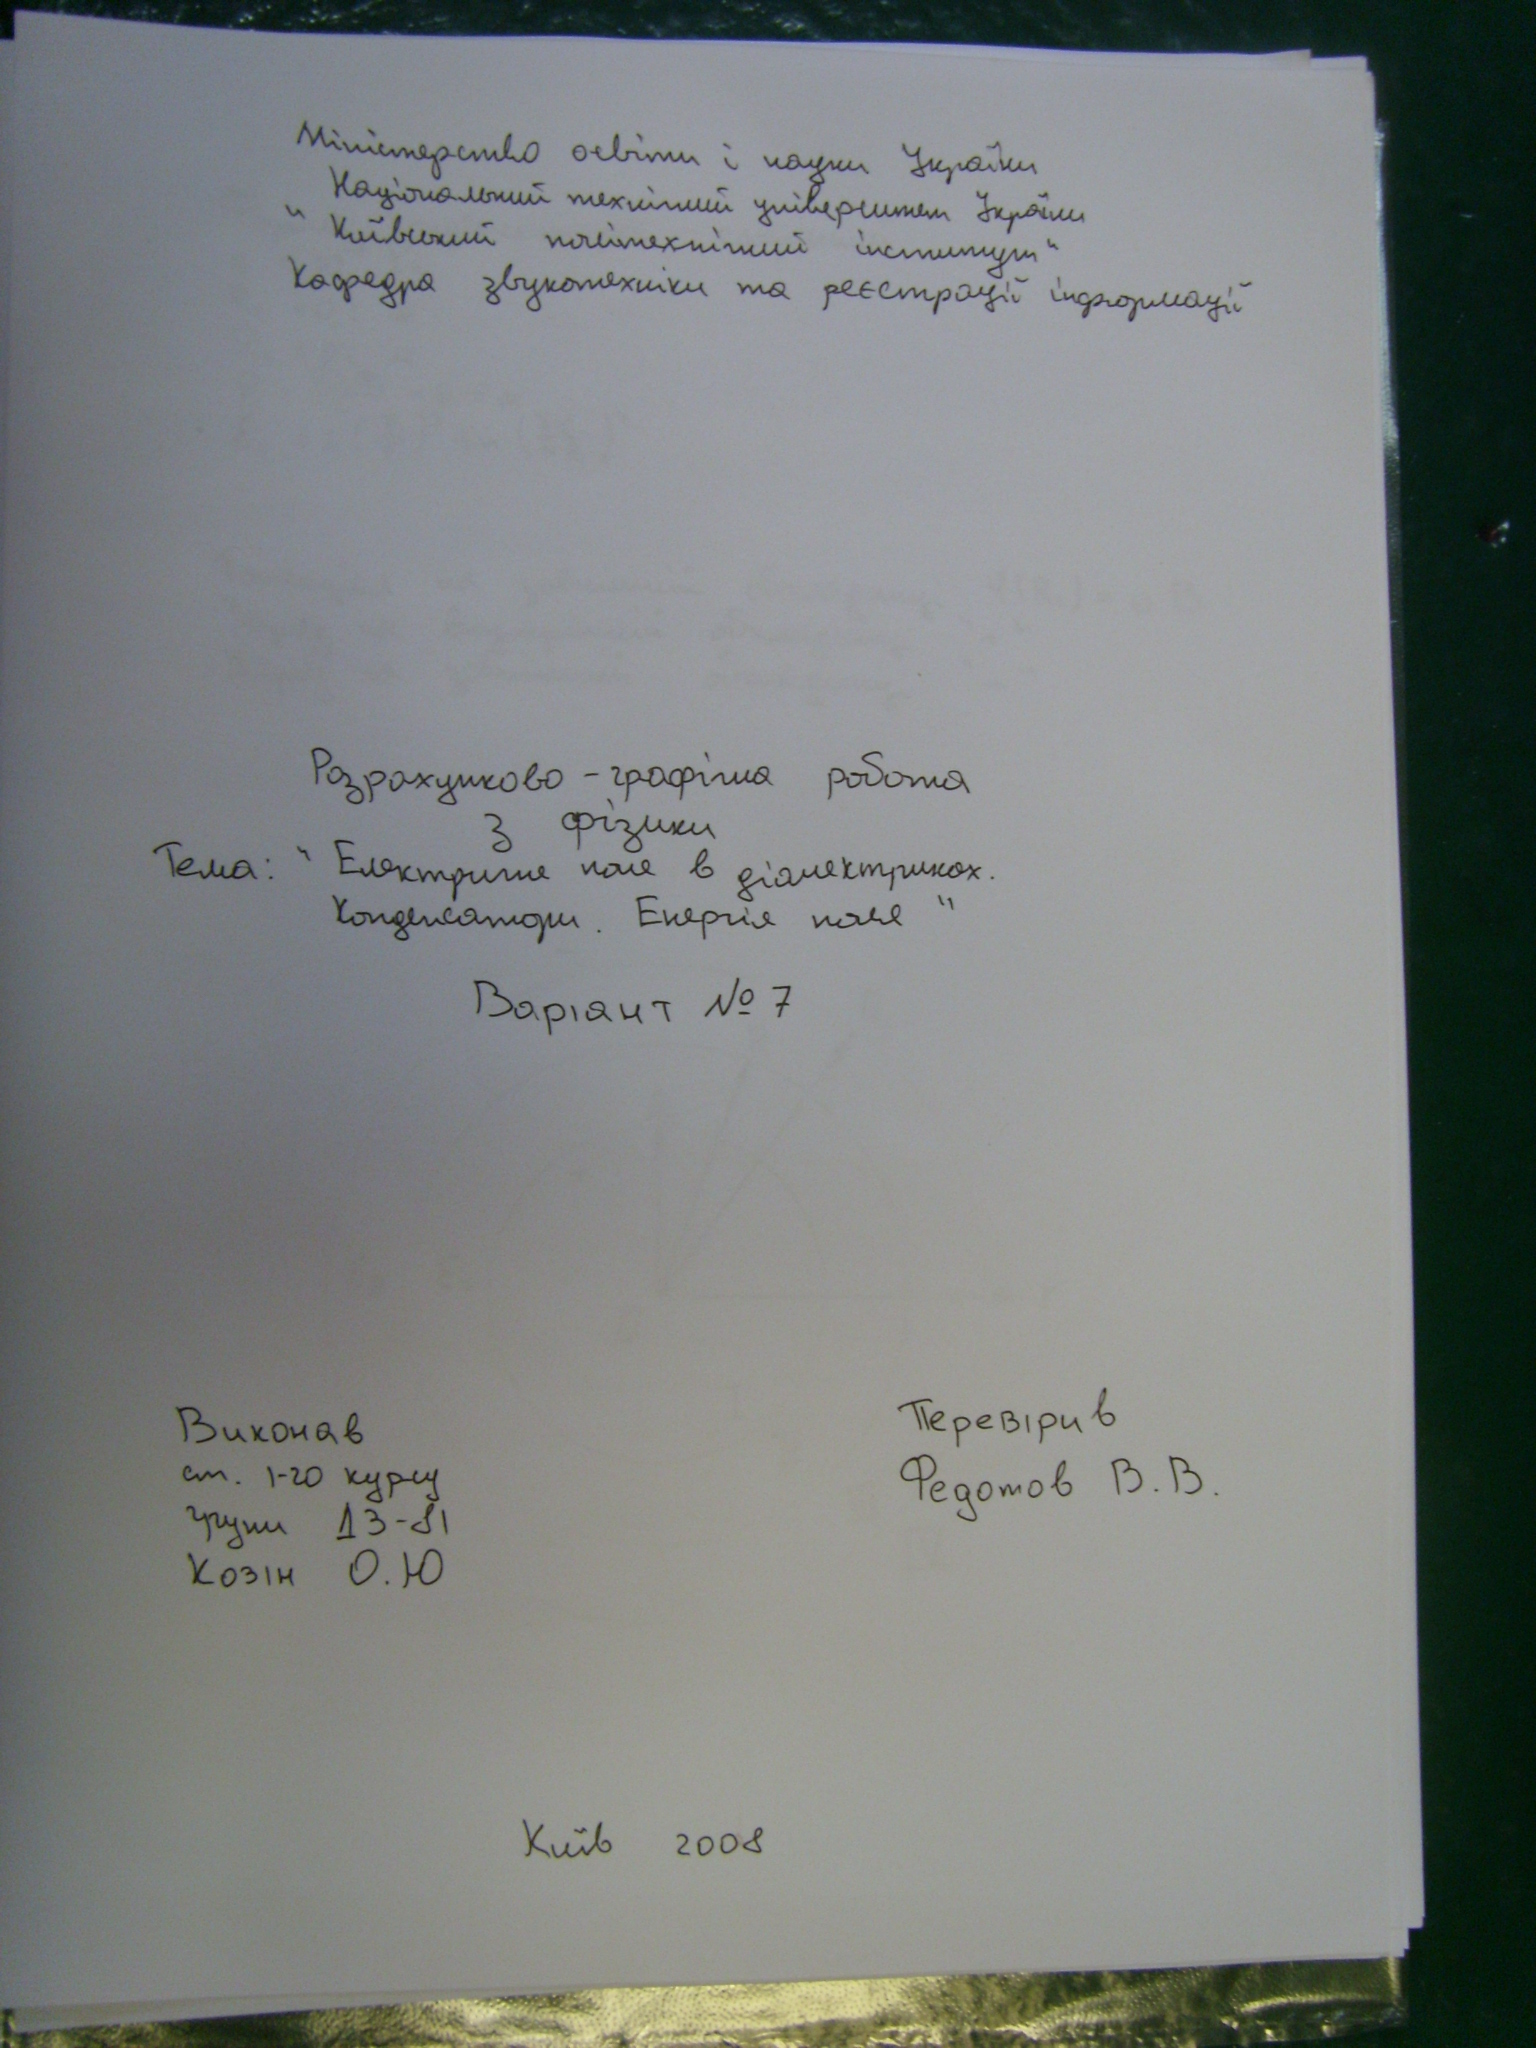 Міністерство освіти і науки України
Національний технічний університет України
"Київський політехнічний інститут"
Кафедра звукотехніки та реєстрації інформації
Розрахунково-графічна робота
з фізики
Тема: "Електричне поле в діалектриках.
Конденсатори. Енергія поля"
Варіант №7
Виконав
ст. 1-го курсу
групи ДЗ-81
Козін О.Ю
Перевірив
Федотов В.В.
Київ 2008